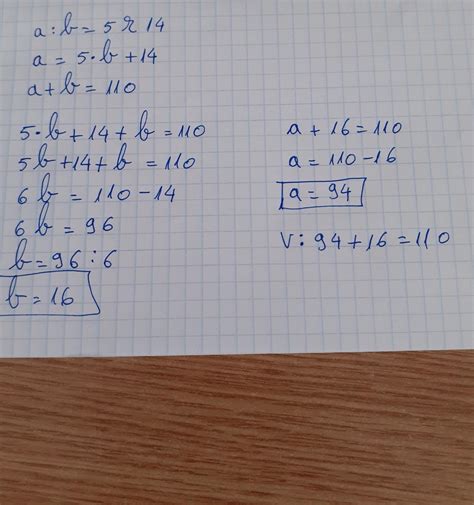 a : b = 5 r 14
a = 5 · b + 14
a + b = 110
5 · b + 14 + b = 110
5b + 14 + b = 110
6b = 110 - 14
6b = 96
b = 96 : 6
b = 16
a + 16 = 110
a = 110 - 16
a = 94
V : 94 + 16 = 110